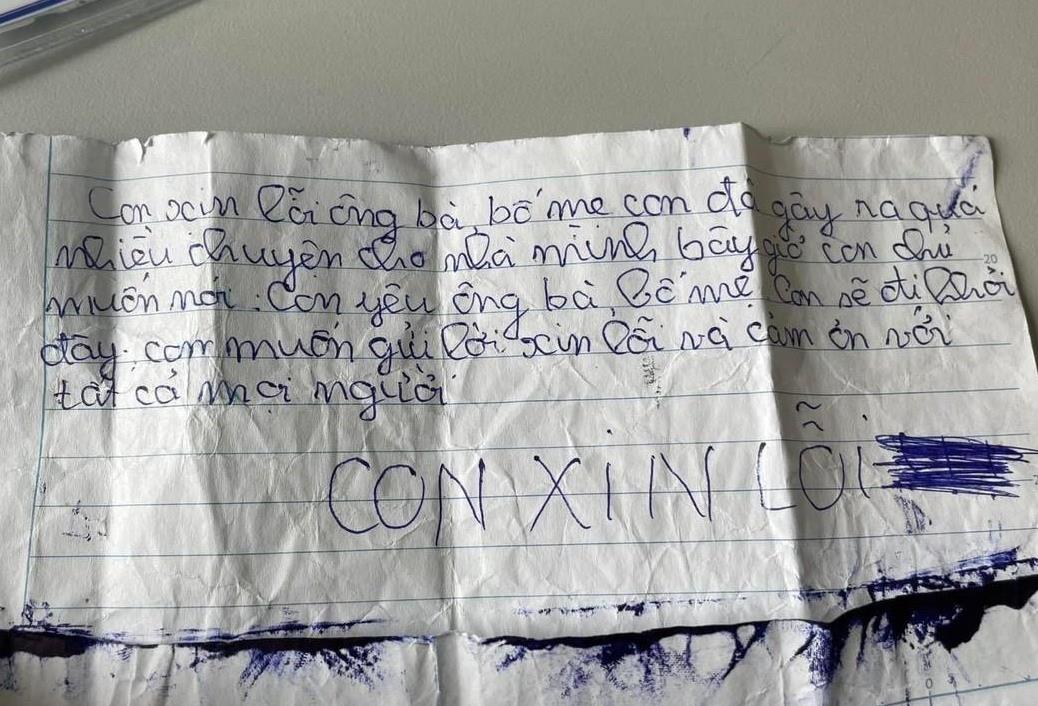 Con xin lỗi ông bà, bố mẹ con đã gây ra quá
nhiều chuyện cho nhà mình, bây giờ con chỉ
muốn nói: Con yêu ông bà, bố mẹ. Con sẽ đi khỏi
đây. con muốn gửi lời xin lỗi và cảm ơn với
tất cả mọi người
CON XIN LỖI
20